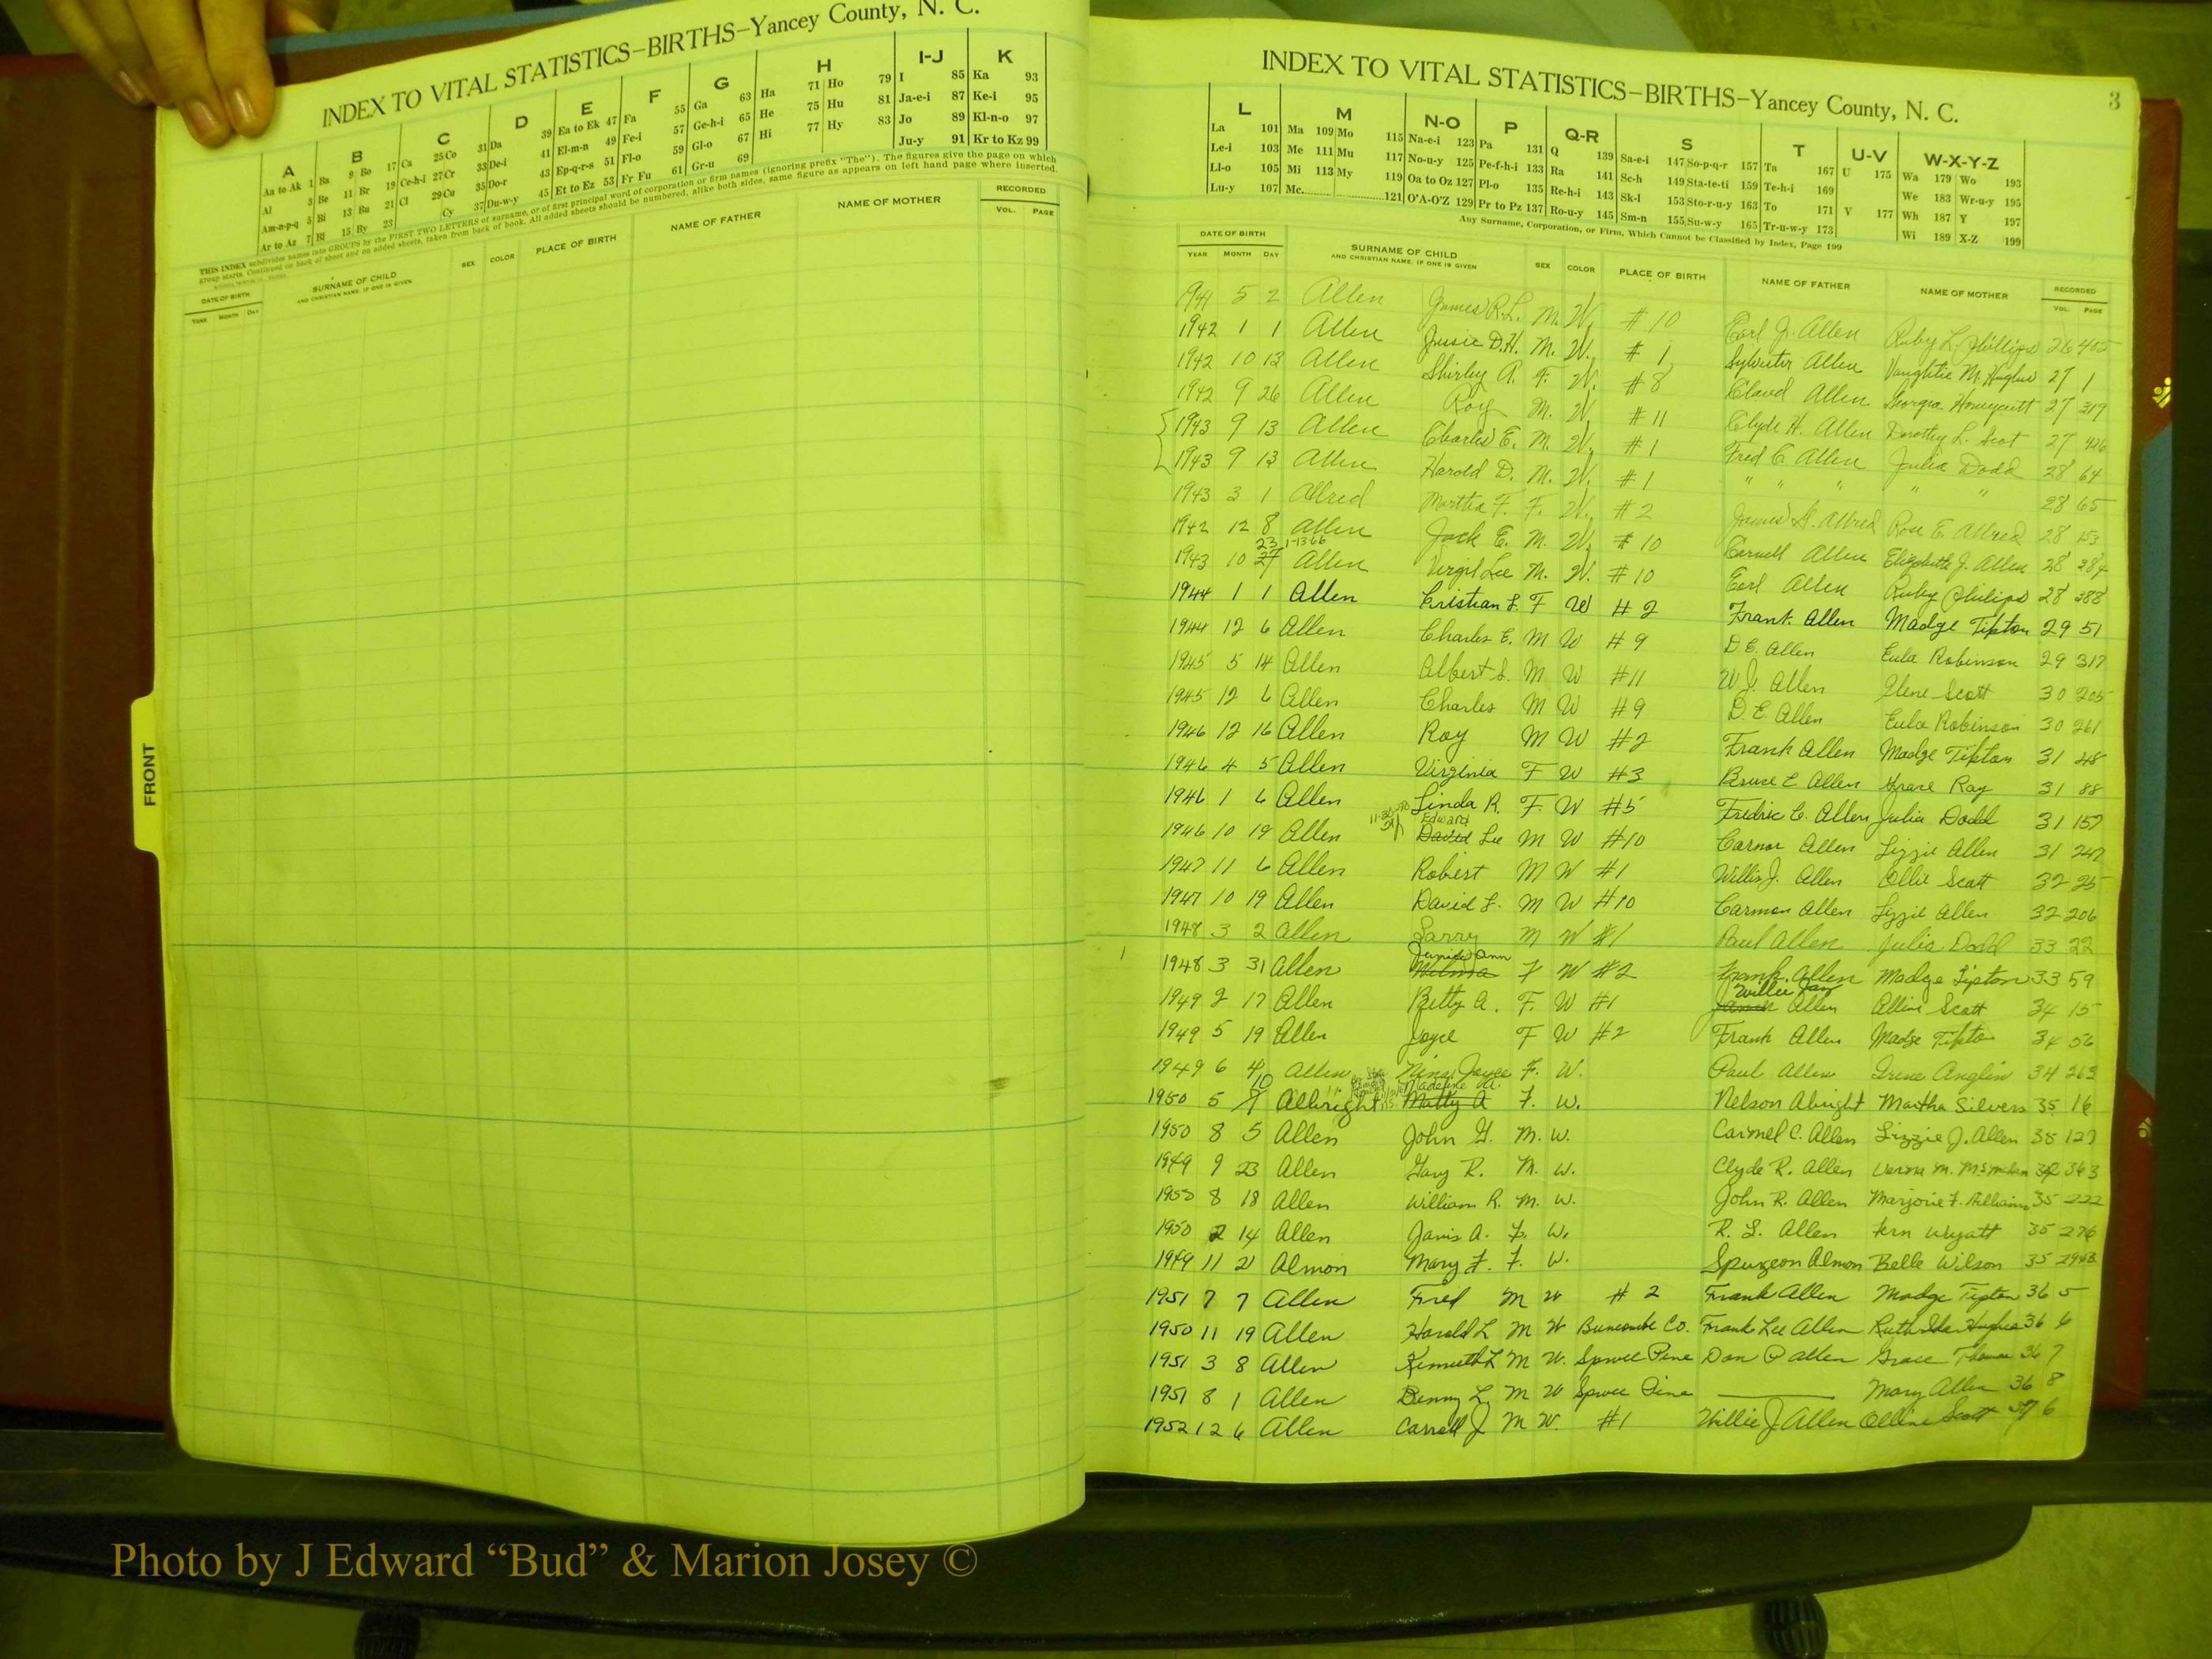 INDEX TO VITAL STATISTICS–BIRTHS–Yancey County, N. C.
A B C D E F G H I-J K
Aa to Ak 1 Ba 9 Bo 17 Ca 25 Co 31 Da 39 Ea to Ek 47 Fa 55 Ga 63 Ha 71 Ho 79 I 85 Ka 93
Al 3 Be 11 Br 19 Ce-h-i 27 Cr 33 De-i 41 El-m-n 49 Fe-i 57 Ge-h-i 65 He 75 Hu 81 Ja-e-i 87 Ke-i 95
Am-n-p-q 5 Bi 13 Bu 21 Cl 29 Cu 35 Do-r 43 Ep-q-r-s 51 Fl-o 59 Gl-o 67 Hi 77 Hy 83 Jo 89 Kl-n-o 97
Ar to Az 7 Bl 15 By 23 Cy 37 Du-w-y 45 Et to Ez 53 Fr Fu 61 Gr-u 69 Ju-y 91 Kr to Kz 99
THIS INDEX subdivides names into GROUPS by the FIRST TWO LETTERS of surname, or of first principal word of corporation or firm names (ignoring prefix "The"). The figures give the page on which
group starts. Continued on back of sheet and on added sheets, taken from back of book. All added sheets should be numbered, alike both sides, same figure as appears on left hand page where inserted.
DATE OF BIRTH SURNAME OF CHILD SEX COLOR PLACE OF BIRTH NAME OF FATHER NAME OF MOTHER RECORDED
YEAR MONTH DAY AND CHRISTIAN NAME, IF ONE IS GIVEN VOL. PAGE
FRONT
INDEX TO VITAL STATISTICS–BIRTHS–Yancey County, N. C.
3
L M N-O P Q-R S T U-V W-X-Y-Z
La 101 Ma 109 Mo 115 Na-e-i 123 Pa 131 Q 139 Sa-e-i 147 So-p-q-r 157 Ta 167 U 175 Wa 179 Wo 193
Le-i 103 Me 111 Mu 117 No-u-y 125 Pe-f-h-i 133 Ra 141 Sc-h 149 Sta-te-ti 159 Te-h-i 169 We 183 Wr-u-y 195
Ll-o 105 Mi 113 My 119 Oa to Oz 127 Pl-o 135 Re-h-i 143 Sk-l 153 Sto-r-u-y 163 To 171 V 177 Wh 187 Y 197
Lu-y 107 Mc 121 O'A-O'Z 129 Pr to Pz 137 Ro-u-y 145 Sm-n 155 Su-w-y 165 Tr-u-w-y 173 Wi 189 X-Z 199
Any Surname, Corporation, or Firm, Which Cannot be Classified by Index, Page 199
DATE OF BIRTH SURNAME OF CHILD SEX COLOR PLACE OF BIRTH NAME OF FATHER NAME OF MOTHER RECORDED
YEAR MONTH DAY AND CHRISTIAN NAME, IF ONE IS GIVEN VOL. PAGE
1941 5 2 Allen James R.L. M. W. #10 Earl J. Allen Ruby L. Phillips 26 405
1942 1 1 Allen D.H. M. W. #1 Sylvester Allen M. Hughes 27 1
1942 10 13 Allen Shirley A. F. W. #8 Claud Allen Georgia Honeycutt 27 319
1942 9 26 Allen Roy M. W. #11 Clyde H. Allen Dorothy L. Scot 27 426
1943 9 13 Allen Charles E. M. W. #1 Fred C Allen Julia Dodd 28 64
1943 9 13 Allen Harold D. M. W. #1 " " " " " 28 65
1943 3 1 Allred Martha F. F. W. #2 James Allred Rose E. Allred 28 153
1942 12 8 Allen Jack E. M. W. #10 Allen Elizabeth J. Allen 28 284
23 1-13-66
1943 10 27 Allen Virgil Lee M. W. #10 Earl Allen Ruby Philips 28 388
1944 1 1 Allen Cristian L. F W #2 Frank Allen Madge Tipton 29 51
1944 12 6 Allen Charles E. M W #9 D.E. Allen Eula Robinson 29 317
1945 5 14 Allen Albert L. M W #11 W.J. Allen Scott 30 205
1945 12 6 Allen Charles M W #9 D.E. Allen Eula Robinson 30 261
1946 12 16 Allen Roy M W #2 Frank Allen Madge Tipton 31 48
1946 4 5 Allen Virginia F W #3 Bruce E Allen Grace Ray 31 88
1946 1 6 Allen Linda R. F. W #5 Fredric C. Allen Julia Dodd 31 157
Edward
1946 10 19 Allen David Lee M W #10 Carnor Allen Lizzie Allen 31 247
1947 11 6 Allen Robert M W #1 Willis J. Allen Ollie Scott 32 25
1947 10 19 Allen David L. M W #10 Carmon Allen Lizzie Allen 32 206
1948 3 2 Allen Larry M W #1 Paul Allen Julia Dodd 33 22
Janice Ann
1948 3 31 Allen Wilma F W #2 Frank Allen Madge Tipton 33 59
Willie Jay
1949 2 17 Allen Betty A. F. W #1 James Allen Alline Scott 34 15
1949 5 19 Allen Joyce F W #2 Frank Allen Madge Tipton 34 56
1949 6 4 Allen Nina Joyce F. W. Paul Allen Irene Anglin 34 263
10 Madeline A.
1950 5 9 Albright Matty A F. W. Nelson Abright Martha Silvers 35 16
1950 8 5 Allen John G. M. W. Carmel C. Allen Lizzie J. Allen 35 127
1949 9 23 Allen Gary R. M. W. Clyde R. Allen Verna M. McMahan 363
1950 8 18 Allen William R. M. W. John R. Allen Marjorie F. 35 222
1950 2 14 Allen Janis A. F. W. R. L. Allen Fern Wyatt 35 276
1949 11 21 Almon Mary F. F. W. Spurgeon Almon Belle Wilson 35
1951 7 7 Allen Fred M W #2 Frank Allen Madge Tipton 36 5
1950 11 19 Allen Harold L M W Buncombe Co. Frank Lee Allen Ruth Hughes 36 6
1951 3 8 Allen Kenneth L M W. Spruce Pine Don P Allen Grace Thomas 36 7
1951 8 1 Allen Benny L. M W Spruce Pine Mary Allen 36 8
1952 12 6 Allen Carroll J M W. #1 Willie J Allen Olline Scott 37 6
Photo by J Edward “Bud” & Marion Josey ©